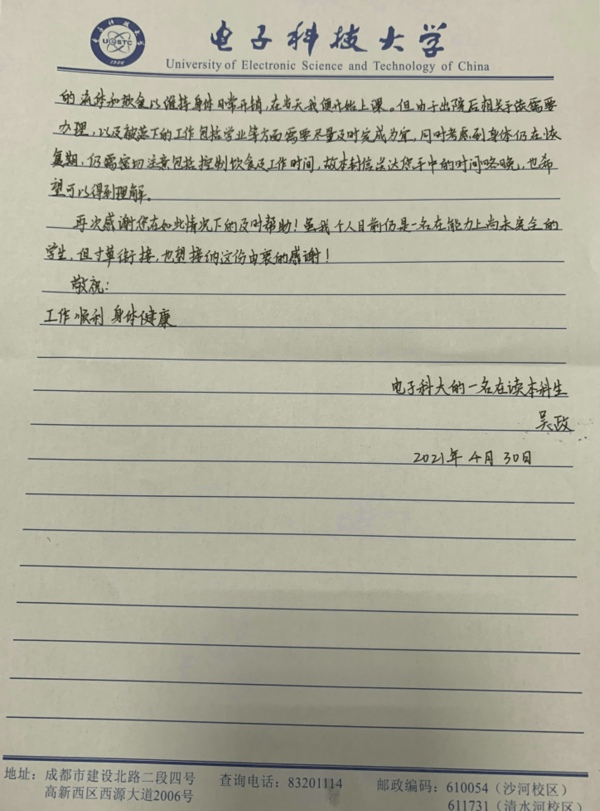 电子科技大学
University of Electronic Science and Technology of China
的流体和软食以维持身体日常开销,在当天我便开始上课。但由于出院后相关手续需要
办理,以及被落下的工作包括学业等方面需要尽量及时完成为常,同时考虑到身体仍在恢
复期,仍需密切注意包括控制饮食及工作时间,故本封信送达您手中的时间略晚,也希
望可以得到理解。
再次感谢您在如此情况下的及时帮助!虽我个人目前仍是一名在能力上尚未完全的
学生,但寸草衔接,也望接纳这份由衷的感谢!
敬祝:
工作顺利 身体健康
电子科大的一名在读本科生
吴政
2021年4月30日
地址:成都市建设北路二段四号
高新西区西源大道2006号
查询电话:83201114
邮政编码:610054(沙河校区)
611731(清水河校区)